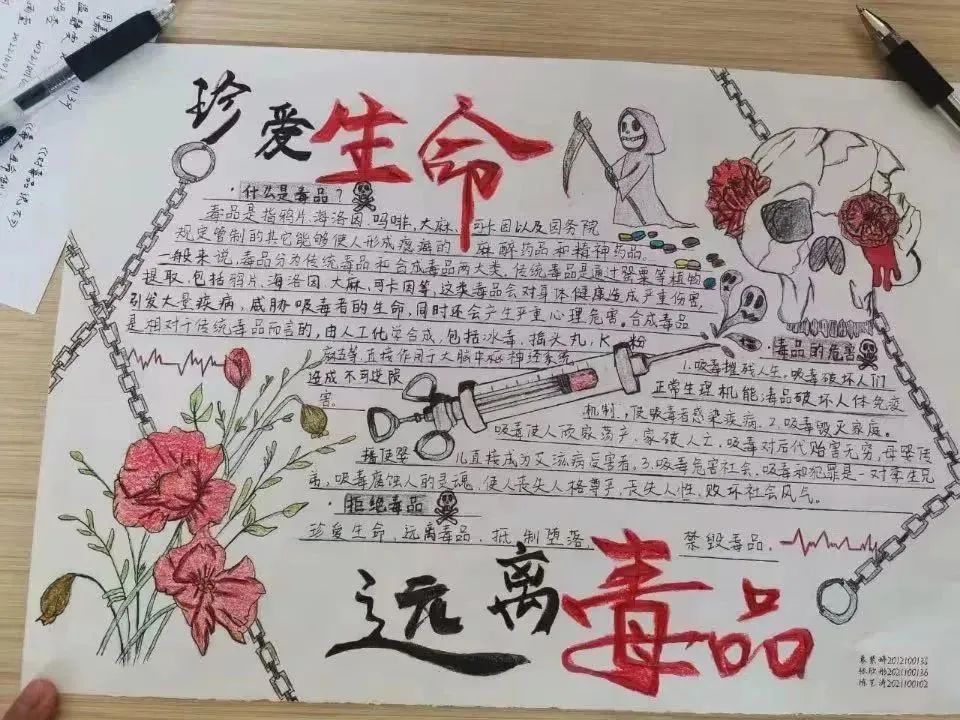 珍爱生命
·什么是毒品?
毒品是指鸦片,海洛因,吗啡,大麻,可卡因以及国务院
规定管制的其它能够使人形成瘾癖的麻醉药品和精神药品。
一般来说,毒品分为传统毒品和合成毒品两大类,传统毒品是通过罂粟等植物
提取,包括鸦片,海洛因,大麻,可卡因等,这类毒品会对身体健康造成严重伤害,
引发大量疾病,威胁吸毒者的生命,同时还会产生严重心理危害。合成毒品
是相对于传统毒品而言的,由人工化学合成,包括冰毒,摇头丸,K粉
麻古等,直接作用于大脑中枢神经系统
造成不可逆
害。
·毒品的危害
1.吸毒摧残人生,吸毒破坏人们
正常生理机能毒品破坏人体免疫
机制,使吸毒者感染疾病,2.吸毒毁灭家庭。
吸毒使人倾家荡产,家破人亡,吸毒对后代贻害无穷,母婴传
播使婴儿直接成为艾滋病受害者,3.吸毒危害社会,吸毒和犯罪是一对孪生兄
弟,吸毒腐蚀人的灵魂,使人丧失人格尊严,丧失人性,败坏社会风气。
·拒绝毒品
珍爱生命,远离毒品,抵制堕落,禁毁毒品,
远离毒品
2012100138
2021100136
2021100102